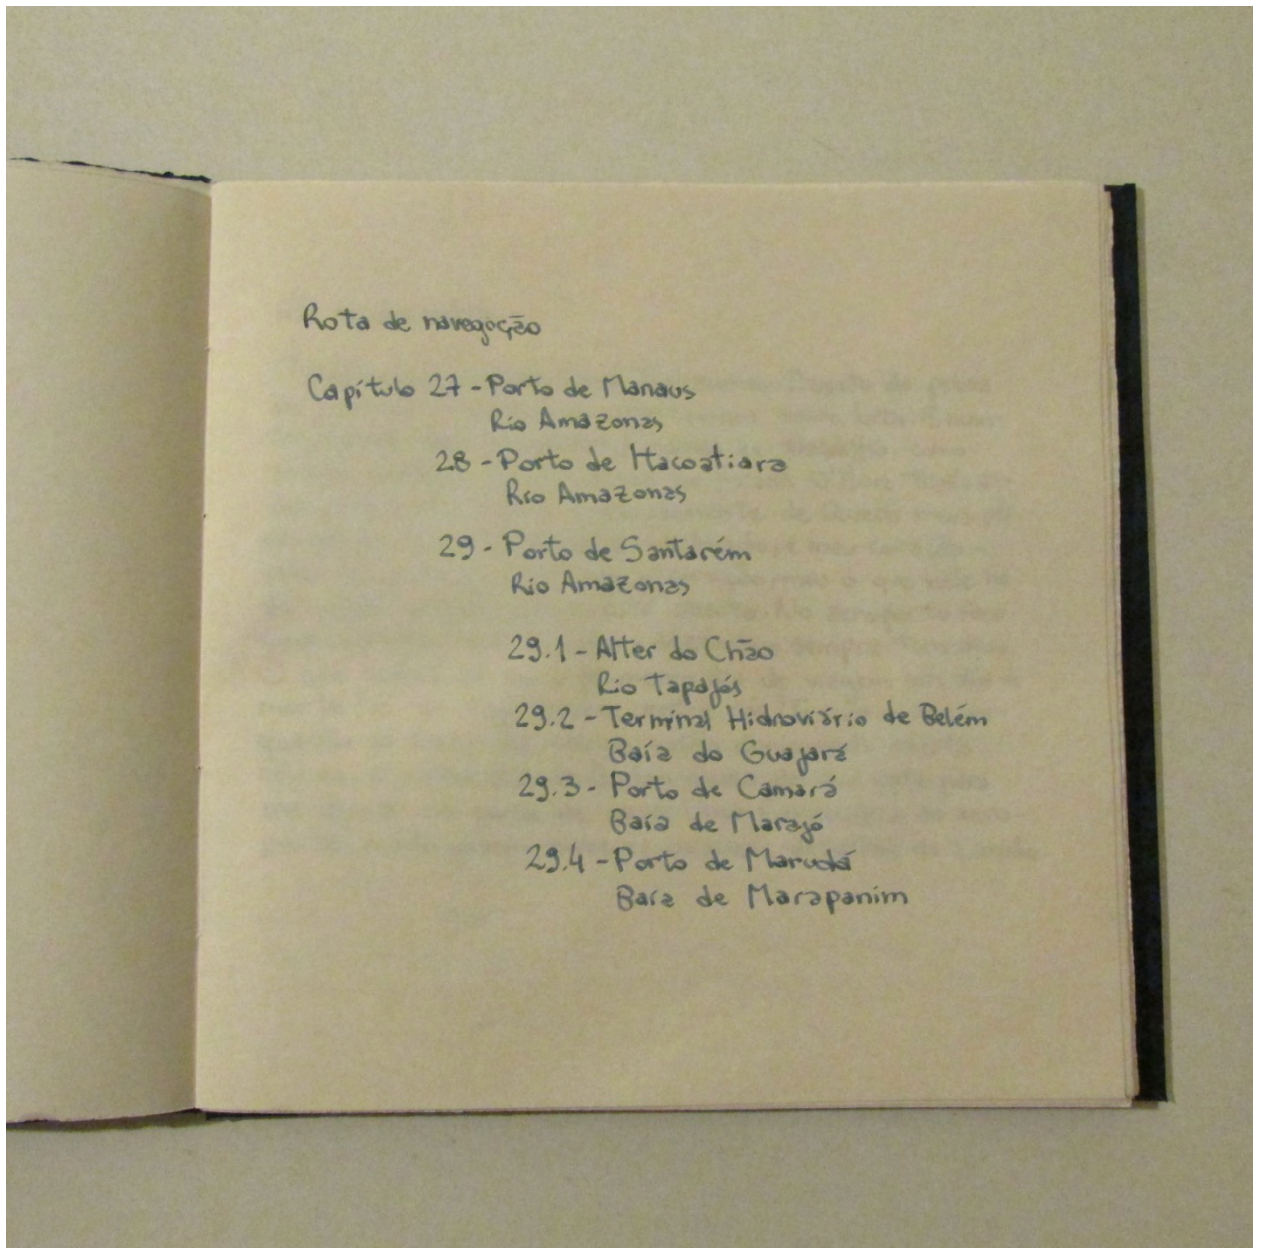 Rota de navegação
Capítulo 27 - Porto de Manaus
Rio Amazonas
28 - Porto de Itacoatiara
Rio Amazonas
29 - Porto de Santarém
Rio Amazonas
29.1 - Alter do Chão
Rio Tapajós
29.2 - Terminal Hidroviário de Belém
Baía do Guajará
29.3 - Porto de Camará
Baía de Marajó
29.4 - Porto de Marudá
Baía de Marapanim